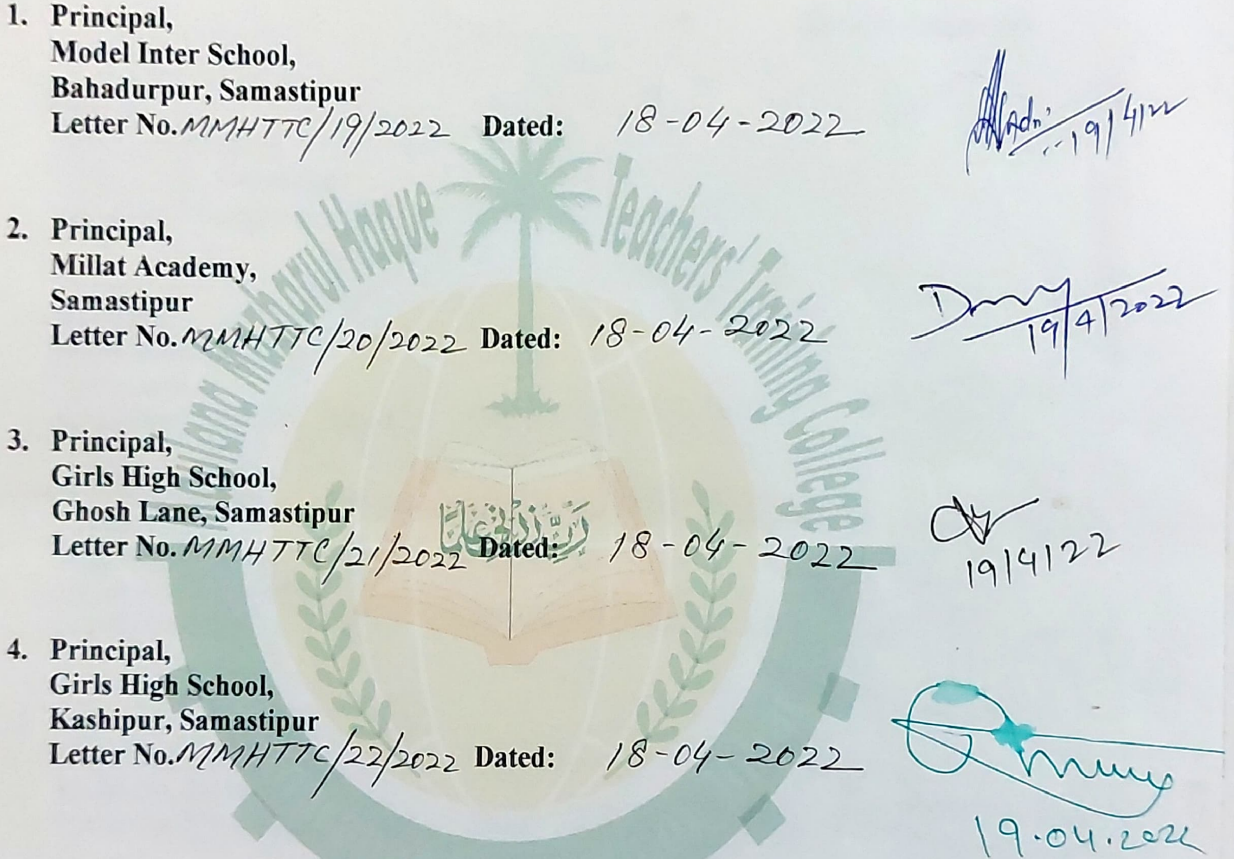 1. Principal,
Model Inter School,
Bahadurpur, Samastipur
Letter No. MMHTTC/19/2022 Dated: 18-04-2022
19/4/22
2. Principal,
Millat Academy,
Samastipur
Letter No. MMHTTC/20/2022 Dated: 18-04-2022
19/4/2022
3. Principal,
Girls High School,
Ghosh Lane, Samastipur
Letter No. MMHTTC/21/2022 Dated: 18-04-2022
19/4/22
4. Principal,
Girls High School,
Kashipur, Samastipur
Letter No. MMHTTC/22/2022 Dated: 18-04-2022
19.04.2022
Maulana Mazharul Haque Teachers' Training College
رَبِّ زِدْنِي عِلْمًا